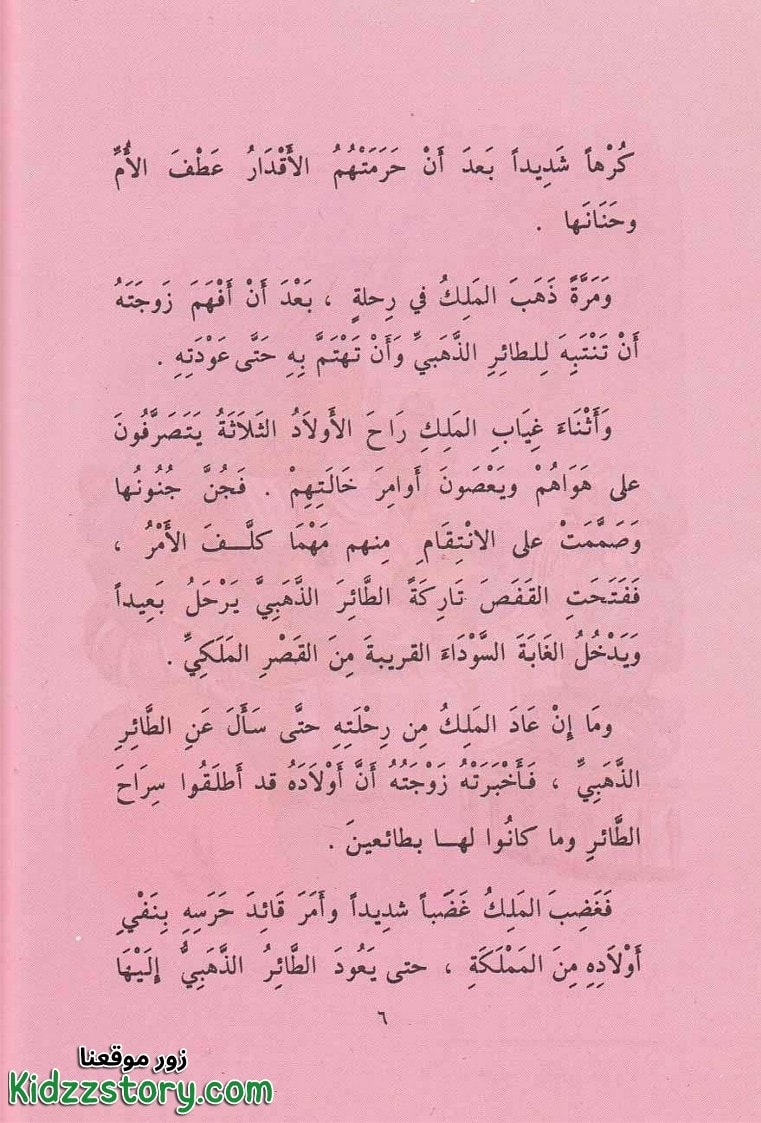 كُرْهاً شَدِيداً بَعدَ أَنْ حَرَمَتْهُمُ الأَقْدَارُ عَطْفَ الأُمِّ
وحَنَانَها .
وَمَرَّةً ذَهَبَ المَلِكُ في رِحلةٍ ، بَعْدَ أَنْ أَفْهَمَ زَوجَتَهُ
أَنْ تَنْتَبِهَ لِلطائِرِ الذَّهَبيِّ وَأَنْ تَهْتَمَّ بِهِ حَتَّى عَوْدَتِهِ .
وَأَثْنَاءَ غِيَابِ المَلِكِ رَاحَ الأَولَادُ الثَلَاثَةُ يَتَصَرَّفُونَ
على هَوَاهُمْ ويَعْصَونَ أَوامِرَ خَالَتِهِمْ . فَجُنَّ جُنُونُها
وَصَمَّمَتْ على الانْتِقَامِ مِنهم مَهْمَا كلَّـفَ الأَمْرُ ،
فَفَتَحَتِ القَفَصَ تَارِكَةً الطَّائِرَ الذَّهَبِيَّ يَرْحَلُ بَعِيداً
وَيَدْخُلُ الغَابَةَ السَّوْدَاءَ القريبةَ مِنَ القَصْرِ المَلَكِيِّ .
ومَا إِنْ عَادَ المَلِكُ مِن رِحْلَتِهِ حتَّى سَأَلَ عَنِ الطَّائِرِ
الذَّهَبِيِّ ، فَأَخْبَرَتْهُ زَوْجَتُهُ أَنَّ أَوْلَادَهُ قد أَطلَقُوا سِرَاحَ
الطَّائرِ وما كانُوا لهـا بطائعينَ .
فَغَضِبَ المَلِكُ غَضَباً شديداً وأَمَرَ قَائِدَ حَرَسِهِ بِنَفْيِ
أَوْلَادِهِ مِنَ المَمْلَكَةِ ، حتى يَعُودَ الطَّائِرُ الذَّهَبِيُّ إِلَيْهَا
٦
زور موقعنا
Kidzzstory.com